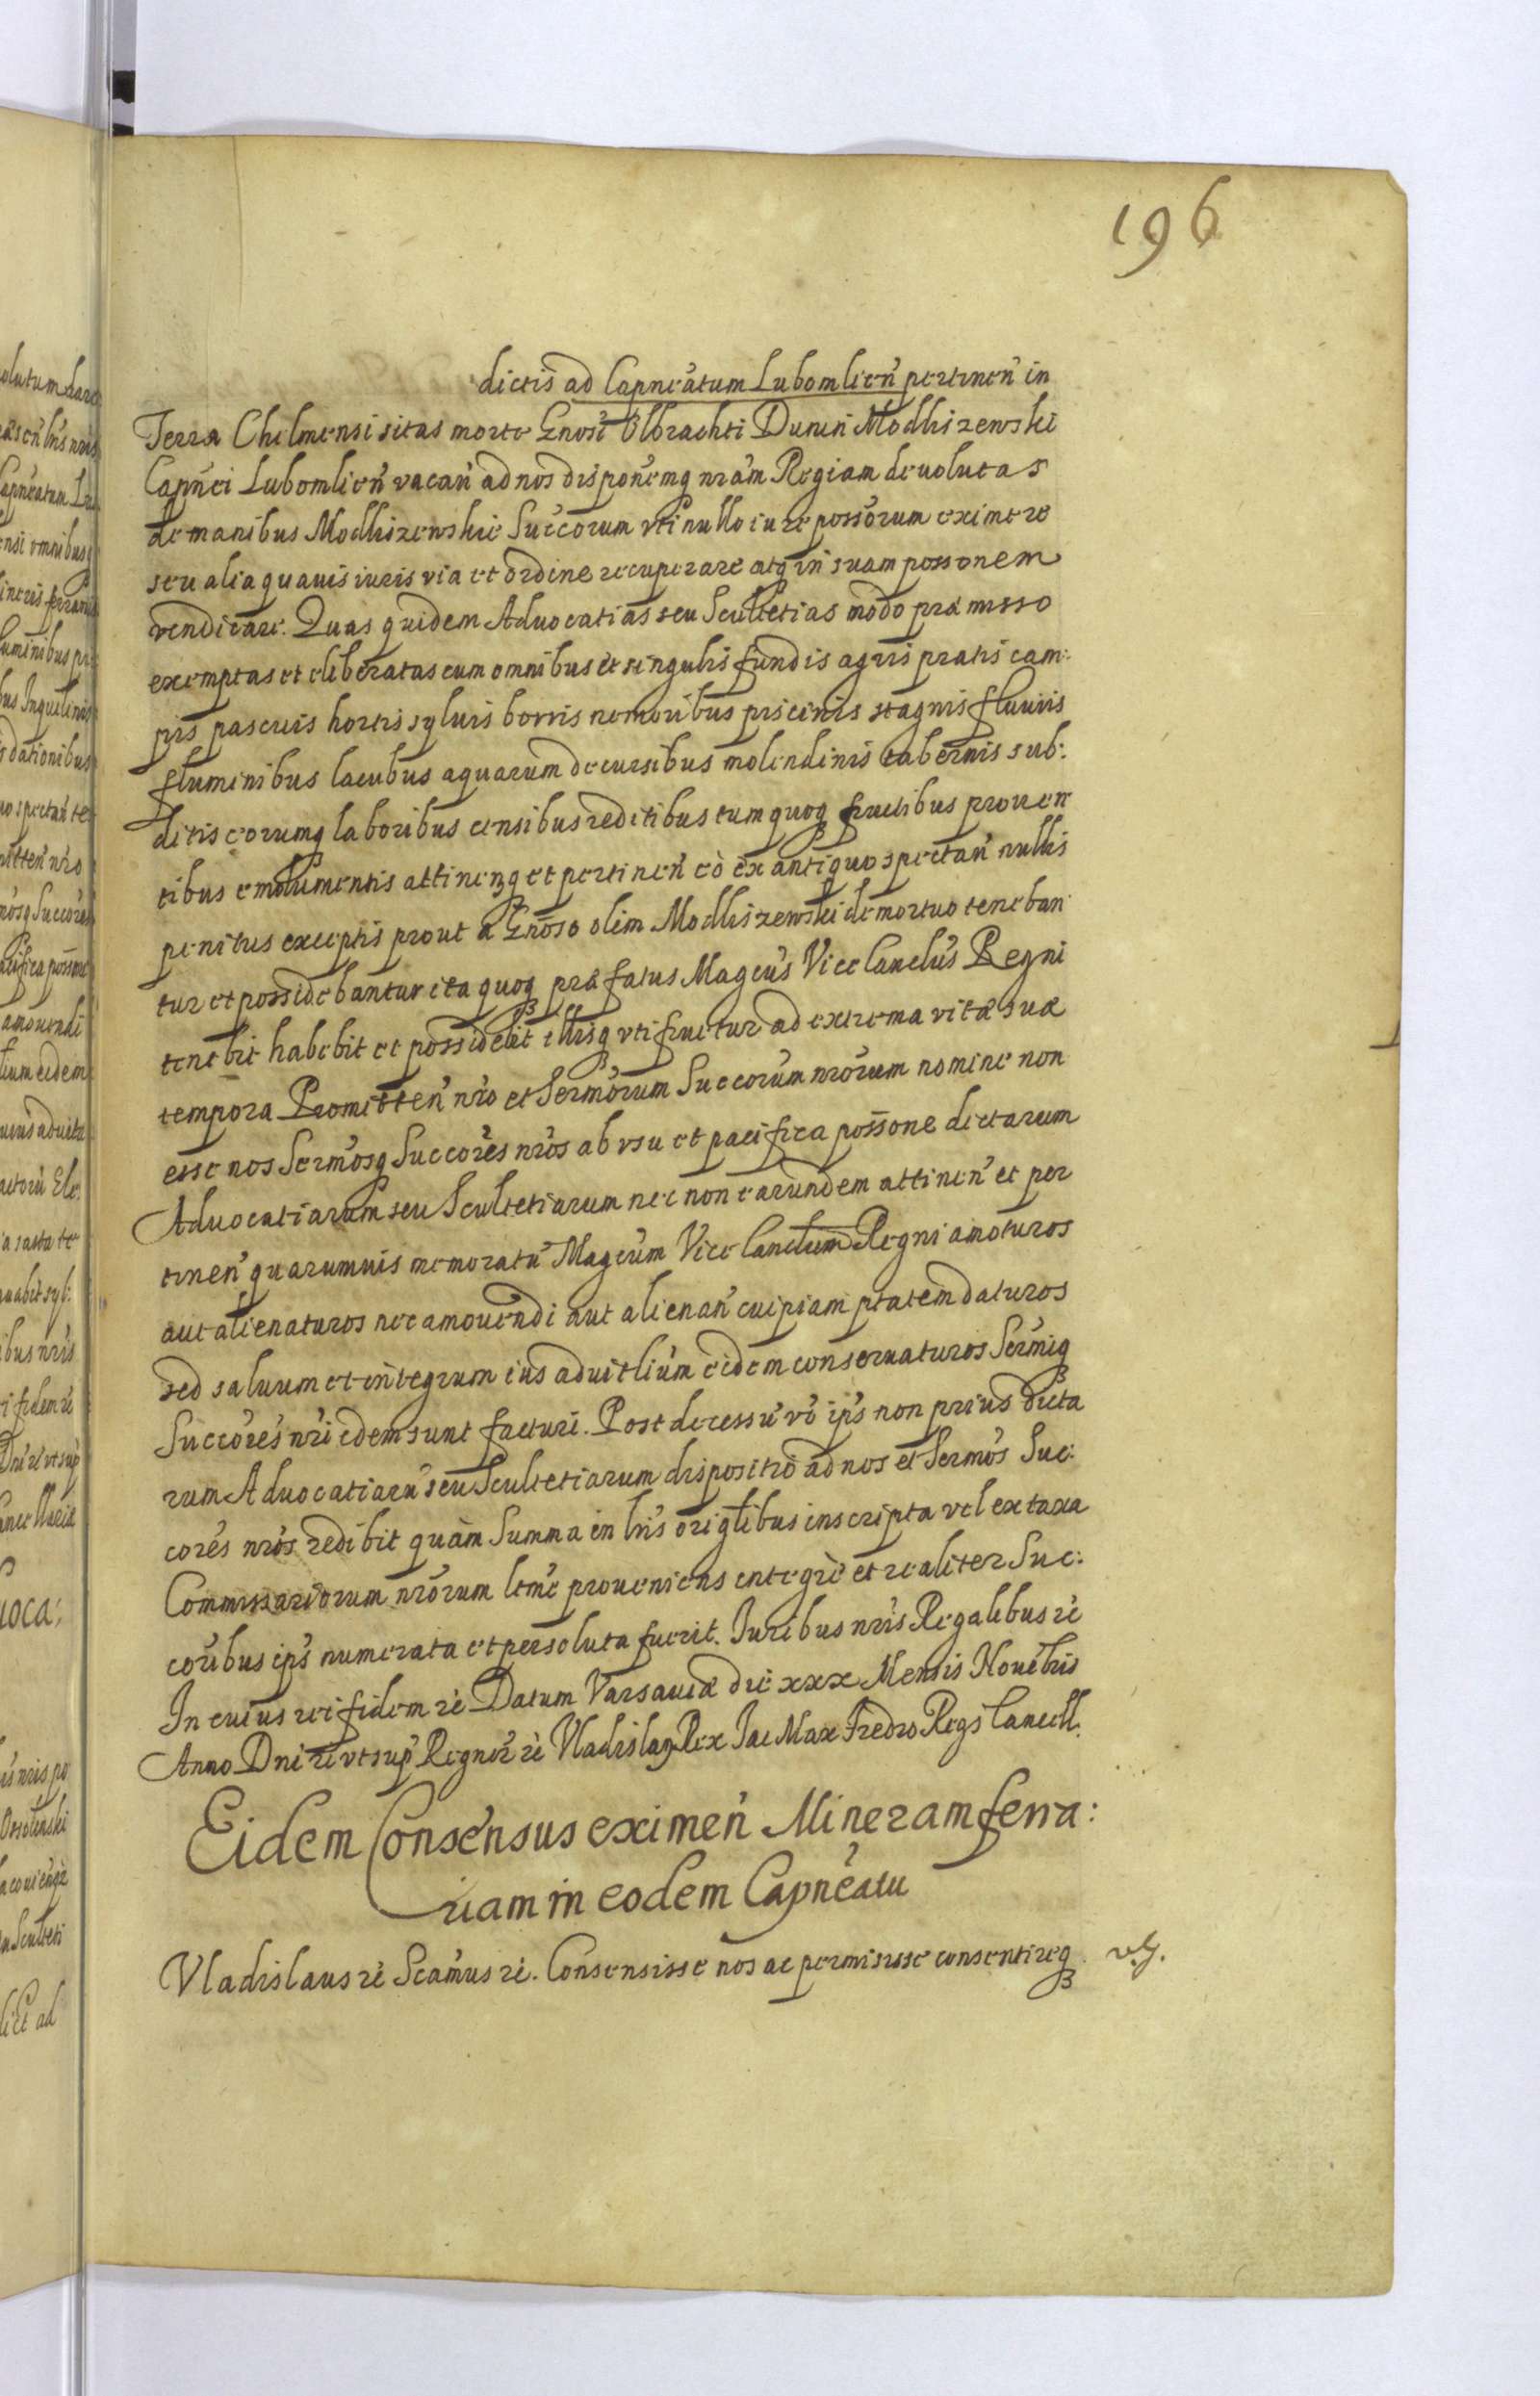 196
dictis ad Capneatum Lubomlien̄ pertinen̄ in
Terra Chelmensi sitas morte Gnosi Olbrachti Dunin Modliszewski
Capnei Lubomlien̄ vacan̄ ad nos disponemq nram Regiam deuolutas
de manibus Modliszewskie Succorum vti nullo iure possorum eximere
seu alia quauis iuris via et ordine recuperare atq in suam possonem
vendicare. Quas quidem Aduocatias seu Scultetias modo præmisso
exemptas et eliberatas cum omnibus et singulis fundis agris pratis cam:
pis pascuis hortis syluis borris nemoribus piscinis stagnis fluuiis
fluminibus lacubus aquarum decursibus molendinis tabernis sub:
ditis eorumq laboribus censibus reditibus tum quoq fructibus prouen
tibus emolumentis attinenq et pertinen̄ eò ex antiquo spectan̄ nullis
penitus exceptis prout a Gnoso olim Modliszewski demortuo teneban
tur et possidebantur ita quoq præfatus Magcus Vice Canclus Regni
tenebit habebit et possidebit illisq vti fruetur ad extrema vitæ suæ
tempora Promitten̄ nro et Sermorum Succorum nrorum nomine non
esse nos Sermosq Succores nros ab vsu et pacifica possone dictarum
Aduocatiarum seu Scultetiarum nec non earundem attinen̄ et per
tinen̄ quarumuis memoratū Magcum Vice Canclum Regni amoturos
aut alienaturos nec amouendi aut alienan̄ cuipiam ptatem daturos
sed saluum et integrum ius aduitlium eidem conseruaturos Sermiq
Succores nri idem sunt facturi. Post decessū vo ips non prius dicta
rum Aduocatiarū seu Scultetiarum dispositio ad nos et Sermos Suc:
cores nros redibit quàm Summa in lris origlibus inscripta vel ex taxa
Commissariorum nrorum ltme proueniens integrè et realiter Suc:
coribus ips numerata et persoluta fuerit. Iuribus nris Regalibus rē
In cuius rei fidem rē Datum Varsauiæ die xxx Mensis Nouebris
Anno Dni rē vt sup Regnor rē Vladislaq Rex Iac Max Fredro Regs Cancell.
Eidem Consensus eximen̄ Mineram ferra:
riam in eodem Capneatu
Vladislaus rē Scamus rē. Consensisse nos ac permisisse consentireq